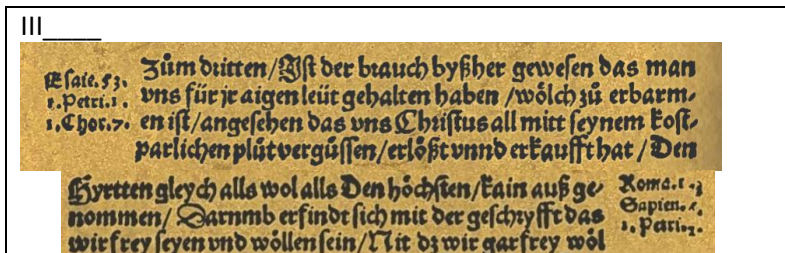 III____
Esaie.53.
1.Petri.1.
1.Chor.7.
Zům dritten/Ist der brauch byßher gewesen das man
vns für jr aigen leüt gehalten haben /wölch zů erbarm-
en ist/angesehen das vns Christus all mitt seynem kost-
parlichen plůt vergüssen/erlößt vnnd erkaufft hat / Den
Hyrtten gleych alls wol alls Den höchsten/kain auß ge-
nommen/ Darnmb erfindt sich mit der geschryfft das
wir frey seyen vnd wöllen sein/Nit dz wir gar frey wöl
Roma.
Sapien.
1. Petri.